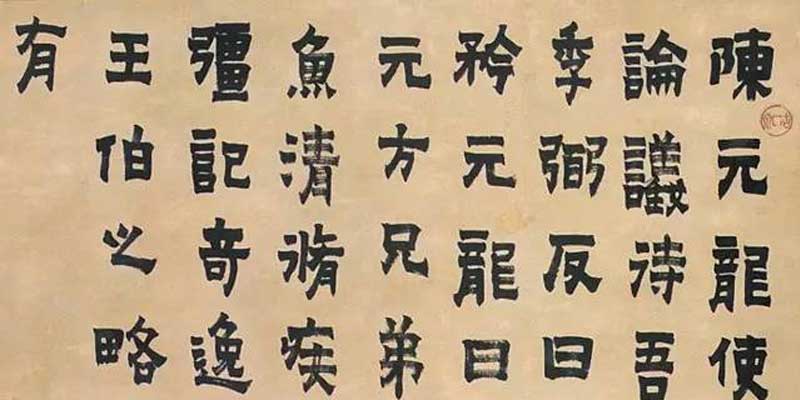 陳元龍使
論議待吾
季弼反曰
矜元龍曰
元方兄弟
魚清脩疾
彊記奇逸
王伯之略
有